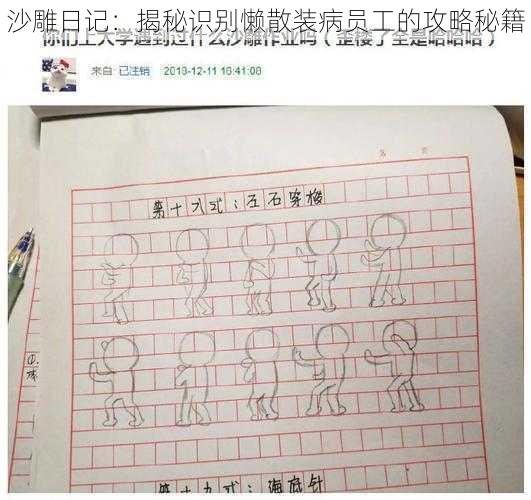 沙雕日记：揭秘识别懒散装病员工的攻略秘籍
你们上大学遇到过什么沙雕作业吗（歪楼了全是哈哈哈）
来自: 已注销 2019-12-11 16:41:08
第 页
第十八式：左右穿梭
第十九式：海底针